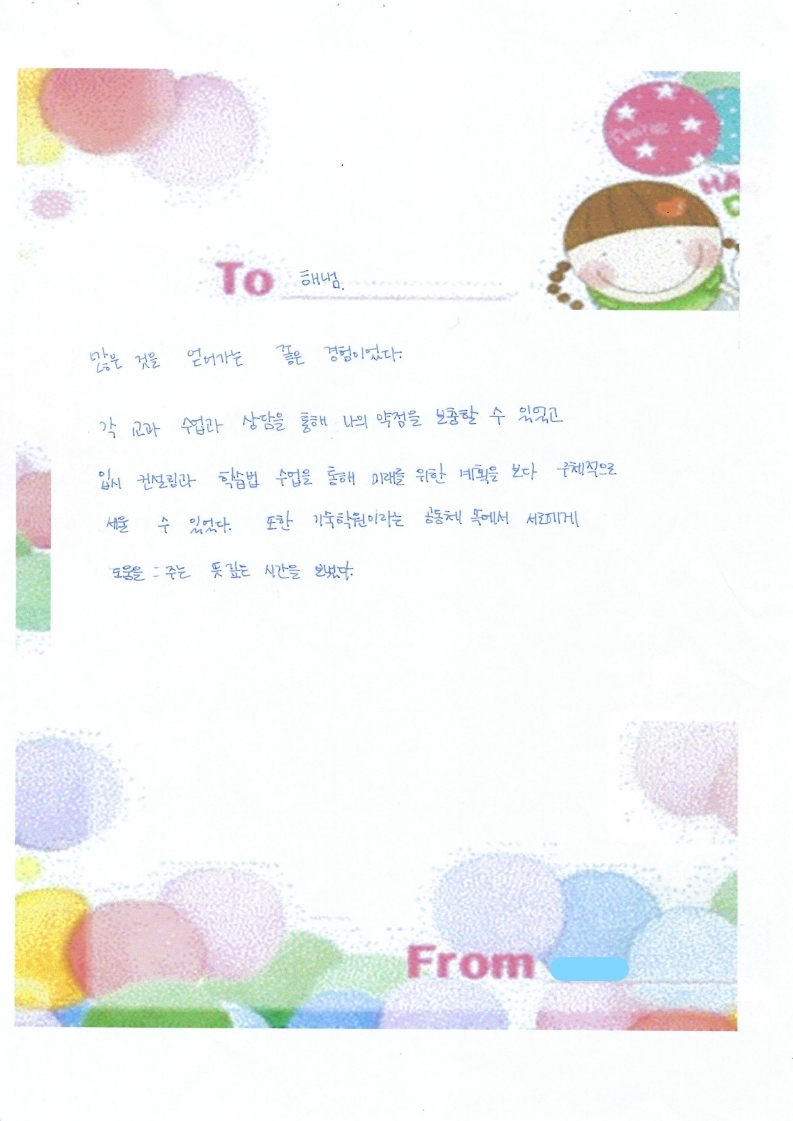 HA
D
To 해냄.
많은 것을 얻어가는 좋은 경험이었다.
각 교과 수업과 상담을 통해 나의 약점을 보충할 수 있었고
입시 컨설팅과 학습법 수업을 통해 미래를 위한 계획을 보다 구체적으로
세울 수 있었다. 또한 기숙학원이라는 공동체 속에서 서로에게
도움을 주는 뜻깊은 시간을 보냈다.
From